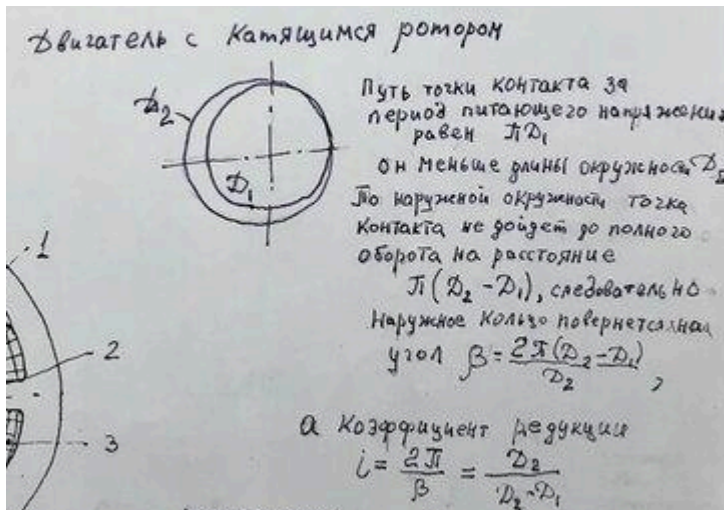 Двигатель с катящимся ротором
D₂
D₁
Путь точки контакта за
период питающего напряжения
равен ПD₁
он меньше длины окружности D₂
По наружной окружности точка
контакта не дойдет до полного
оборота на расстояние
П(D₂ - D₁), следовательно
Наружное кольцо повернется на
угол β = 2П(D₂-D₁)/D₂ ,
а коэффициент редукции
i = 2П/β = D₂/(D₂-D₁)
1
2
3